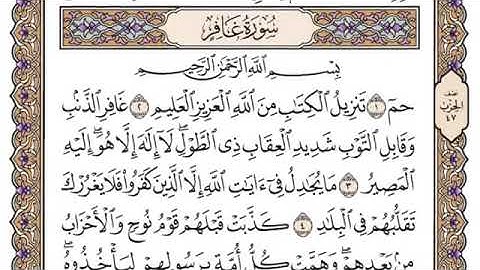 سُورَةُ غَافِرٍ
نصف
الحزب
٤٧
بِسْمِ اللَّهِ الرَّحْمَٰنِ الرَّحِيمِ
حمٓ ١ تَنزِيلُ الْكِتَابِ مِنَ اللَّهِ الْعَزِيزِ الْعَلِيمِ ٢ غَافِرِ الذَّنۢبِ
وَقَابِلِ التَّوْبِ شَدِيدِ الْعِقَابِ ذِي الطَّوْلِ ۖ لَآ إِلَٰهَ إِلَّا هُوَ ۖ إِلَيْهِ
الْمَصِيرُ ٣ مَا يُجَٰدِلُ فِيٓ ءَايَٰتِ اللَّهِ إِلَّا الَّذِينَ كَفَرُوا۟ فَلَا يَغْرُرْكَ
تَقَلُّبُهُمْ فِي الْبِلَٰدِ ٤ كَذَّبَتْ قَبْلَهُمْ قَوْمُ نُوحٍ وَالْأَحْزَابُ
مِنۢ بَعْدِهِمْ ۖ وَهَمَّتْ كُلُّ أُمَّةٍۭ بِرَسُولِهِمْ لِيَأْخُذُوهُ ۖ